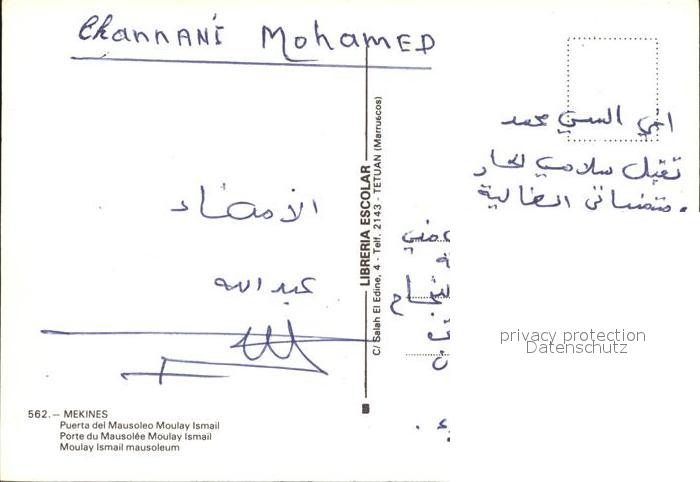 Channani Mohamed
اخي السي محمد
تقبل سلامي الحار
الامضاء
عبد الله
LIBRERIA ESCOLAR
C/ Salah El Edine, 4 - Telf. 2143 - TETUAN (Marruecos)
privacy protection
Datenschutz
562.— MEKINES
Puerta del Mausoleo Moulay Ismail
Porte du Mausolée Moulay Ismail
Moulay Ismail mausoleum